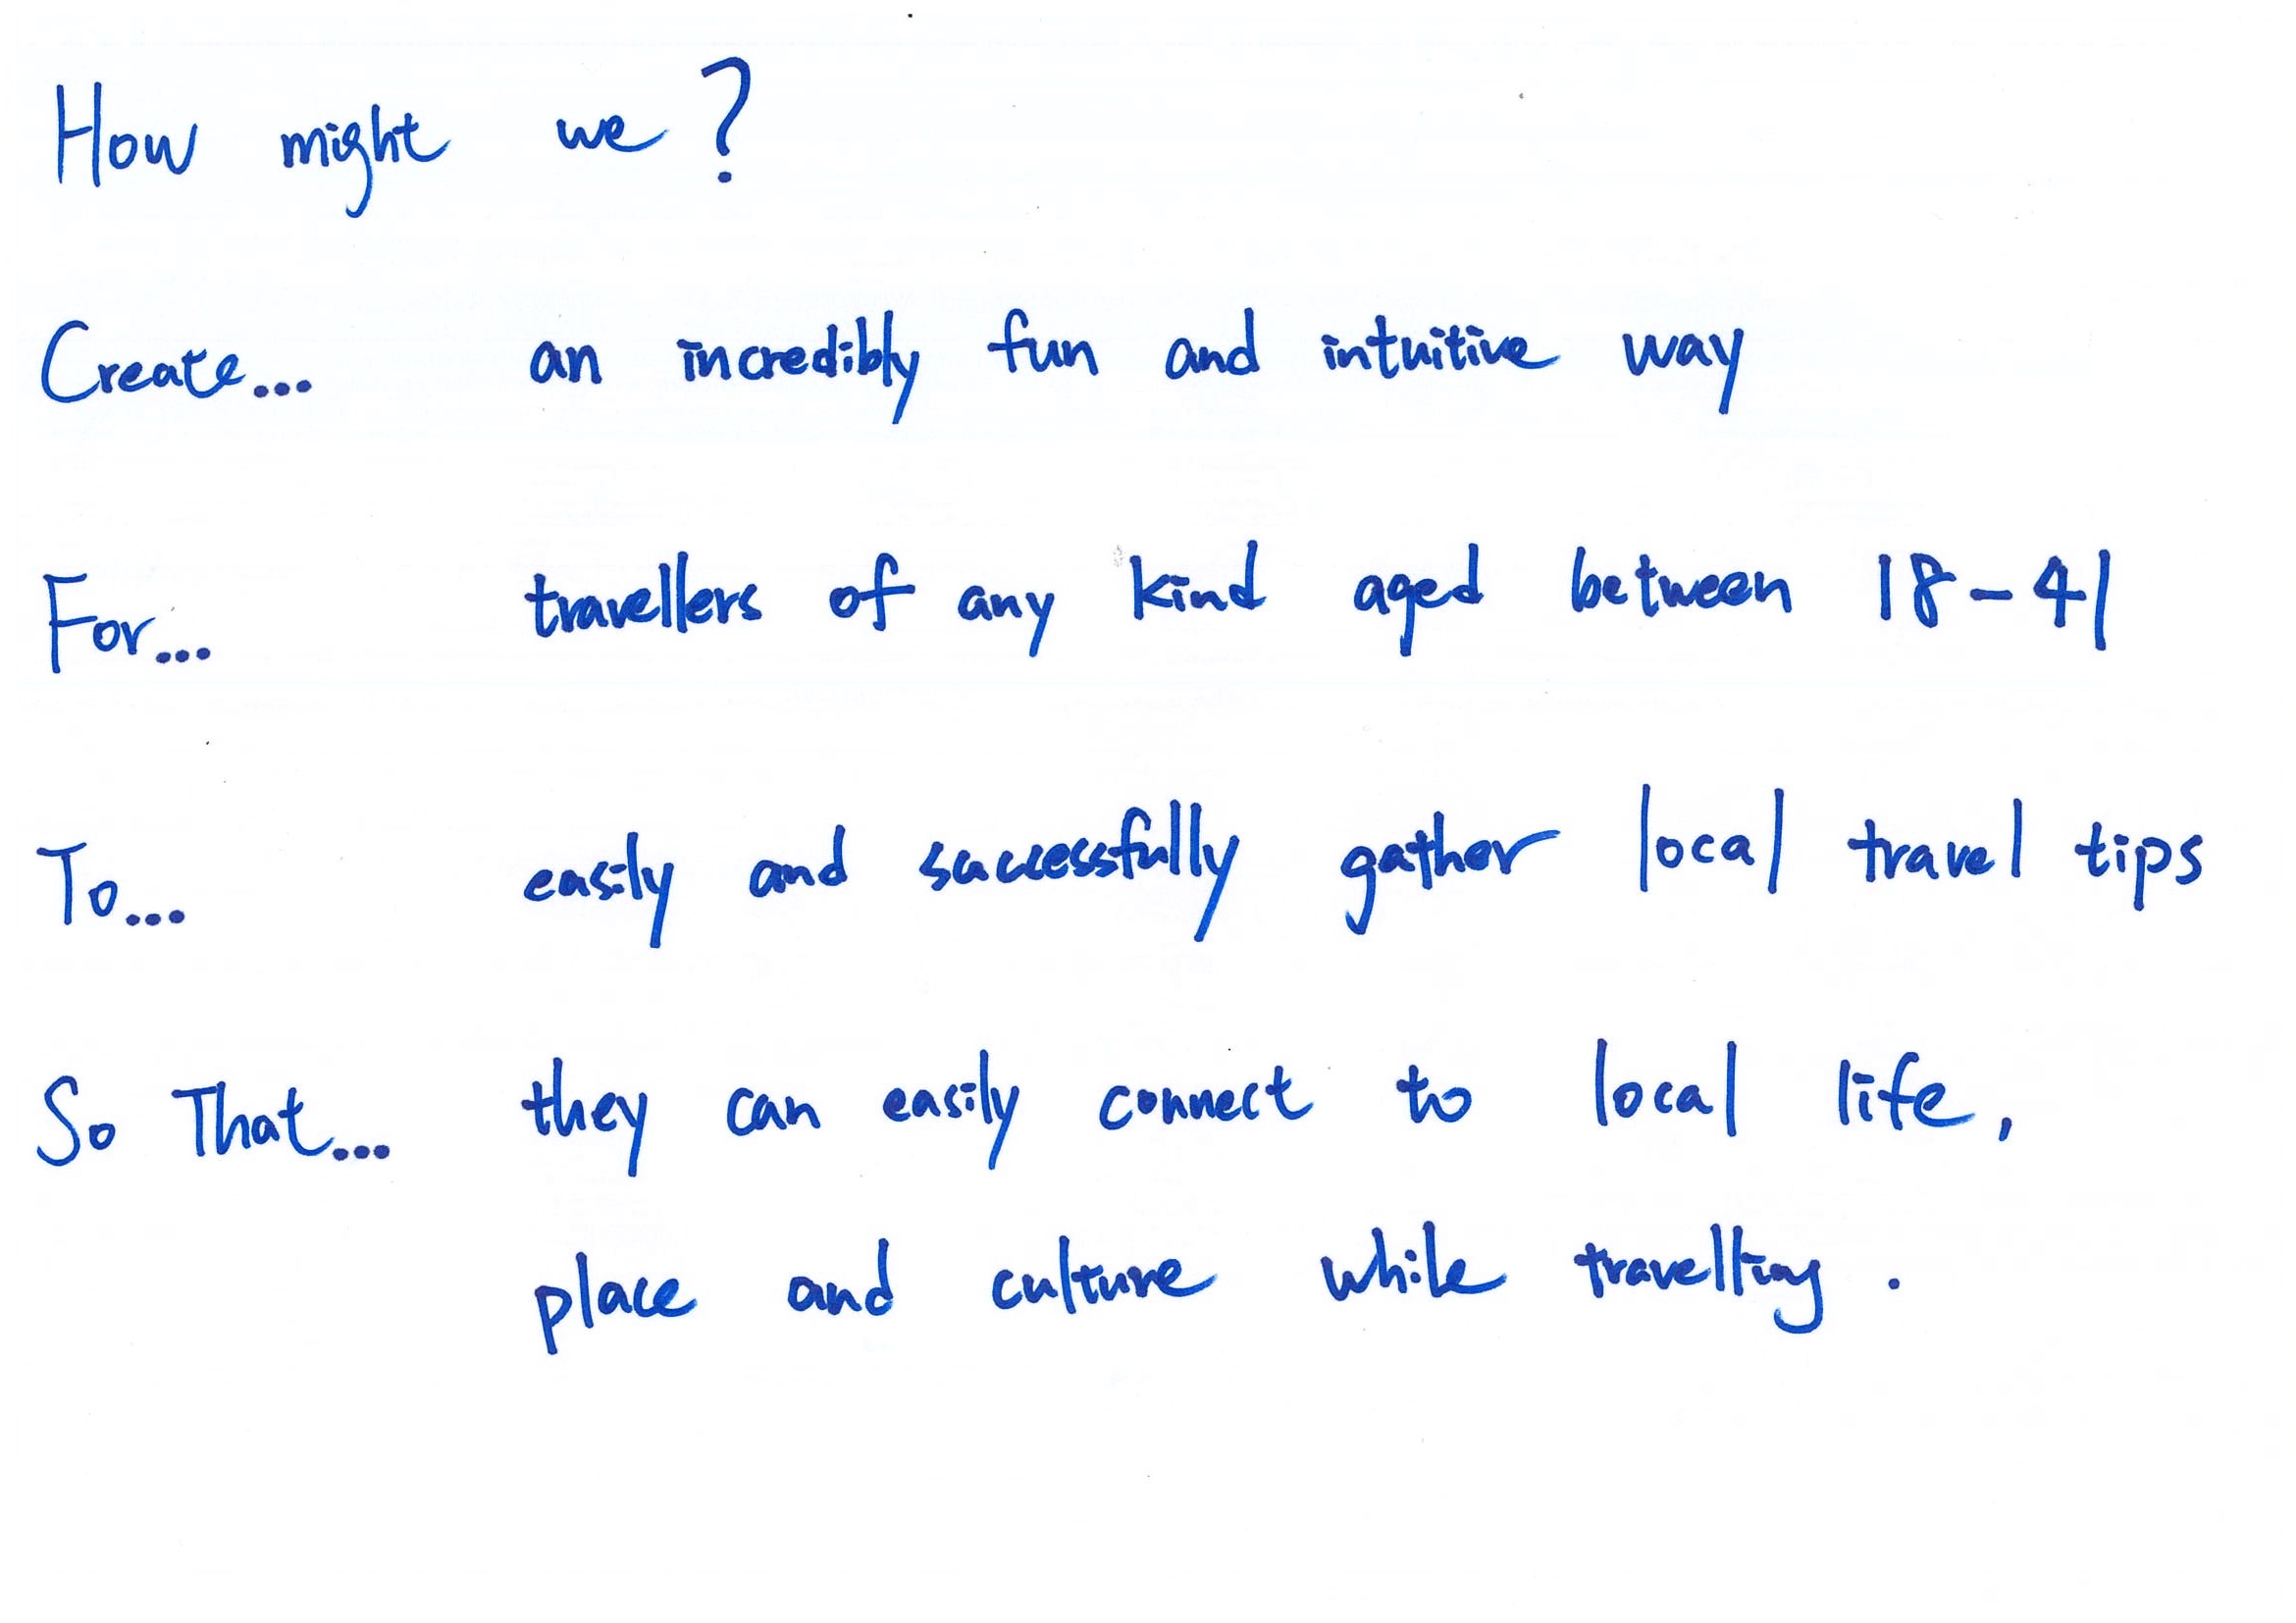 How might we ?
Create... an incredibly fun and intuitive way
For... travellers of any kind aged between 18-41
To... easily and successfully gather local travel tips
So That... they can easily connect to local life,
place and culture while travelling.